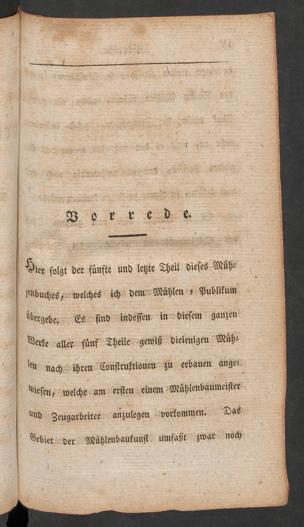 Vorrede.
Hier folgt der fünfte und letzte Theil dieses Müh⸗
lenbuches, welches ich dem Mühlen⸗Publikum
übergebe. Es sind indessen in diesem ganzen
Werke aller fünf Theile gewiß diejenigen Müh⸗
len nach ihren Construktionen zu erbauen ange⸗
wiesen, welche am ersten einem Mühlenbaumeister
und Zeugarbeiter anzulegen vorkommen. Das
Gebiet der Mühlenbaukunst umfaßt zwar noch